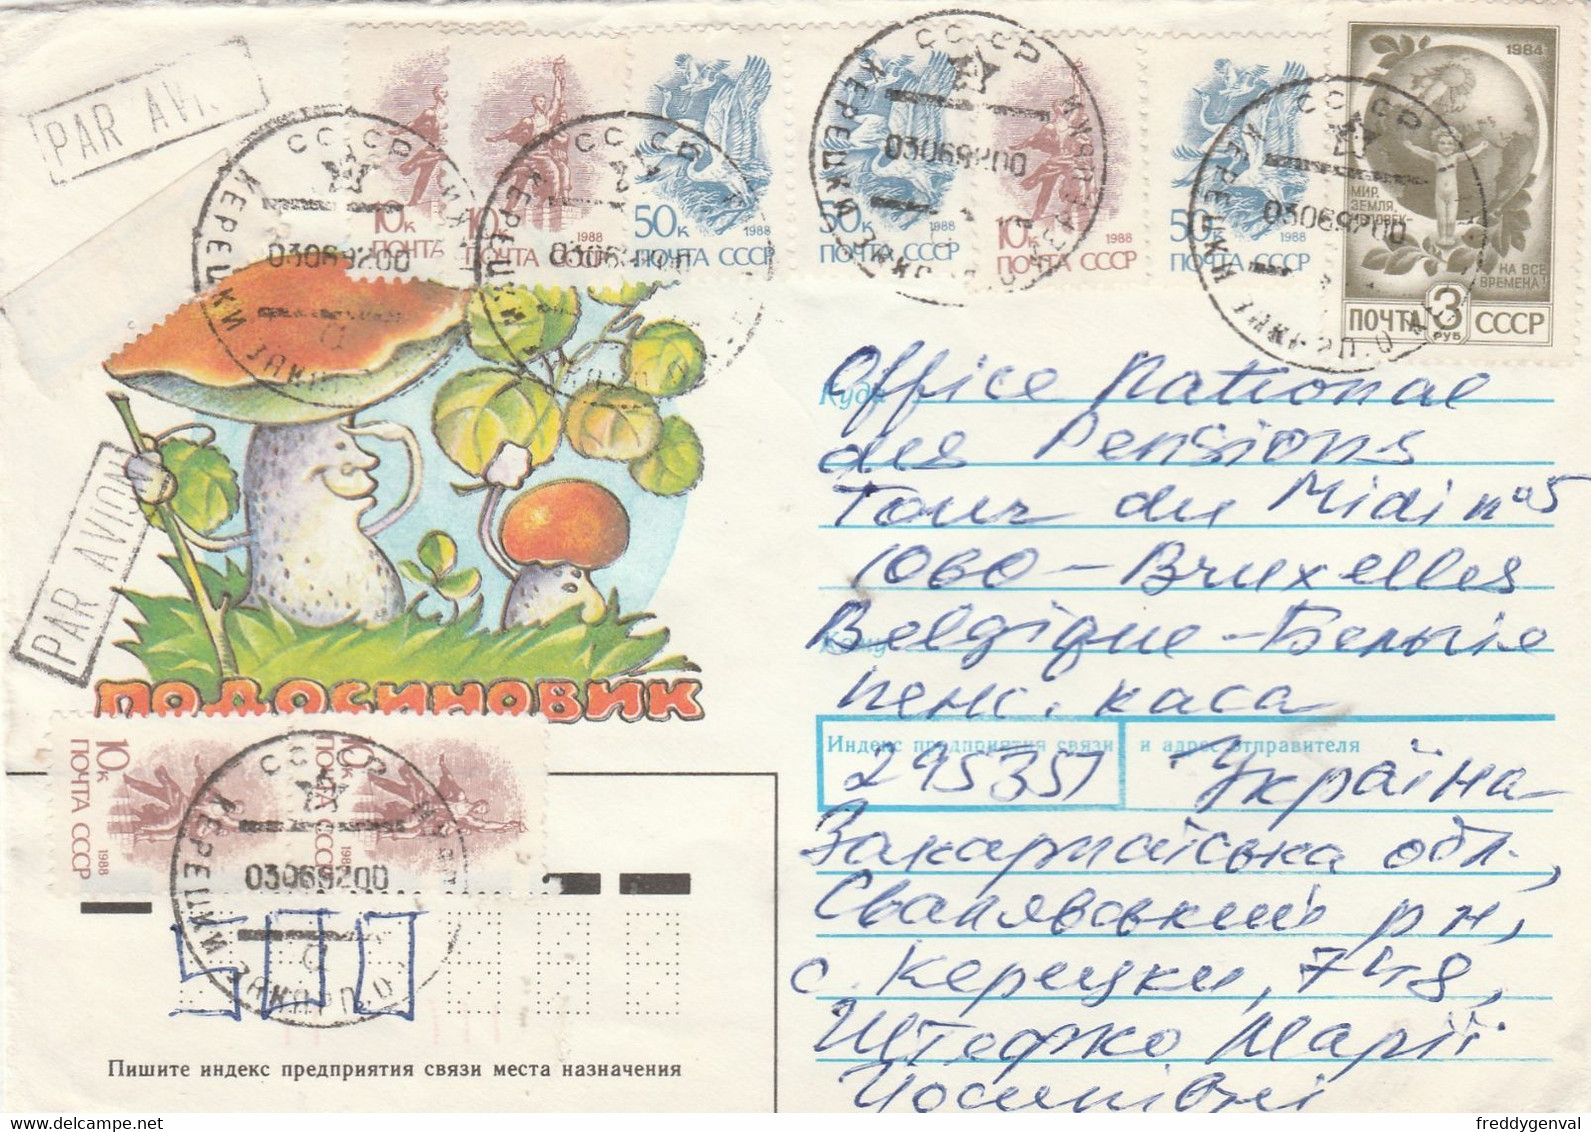 PAR AVION
10к ПОЧТА
10к 1988 ПОЧТА СССР
50к 1988 ПОЧТА СССР
50к ПОЧТА СССР
10к 1988 ПОЧТА СССР
50к 1988 ПОЧТА СССР
1984
МИР, ЗЕМЛЯ, ЧЕЛОВЕК-
НА ВСЕ ВРЕМЕНА!
ПОЧТА 3 РУБ СССР
СССР
КЕРЕЦКИ
03069200
СССР
КЕРЕЦКИ
СССР
КЕРЕЦКИ
03069200
СССР
КЕРЕЦКИ
03069200
PAR AVION
ПОДОСИНОВИК
Куда
Office National
des Pensions
Tour du Midi n°5
1060 - Bruxelles
Кому
Belgique - Бельгіе
пенс. каса
Индекс предприятия связи и адрес отправителя
295351 Україна
Закарпатська обл.,
Свалявський р н,
с. Керецки, 748,
Штефко Марії
Йосипівні
10к 1988 ПОЧТА СССР
10к 1988 ПОЧТА СССР
СССР
КЕРЕЦКИ
03069200
Пишите индекс предприятия связи места назначения
freddygenval